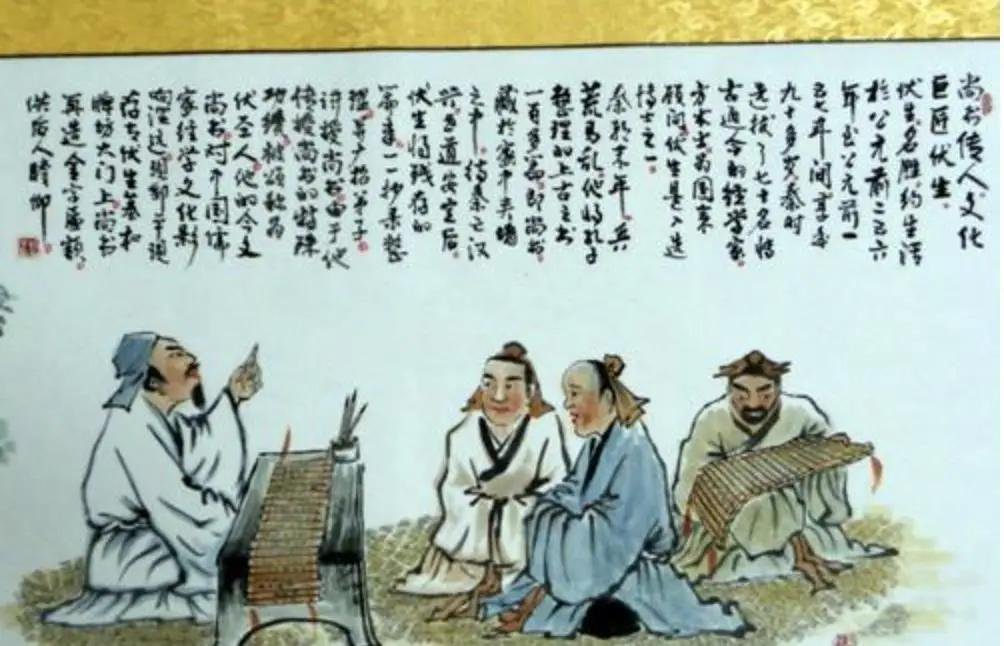 尚书传人文化
巨匠伏生。
伏生名胜约生活
於公元前二六
年至公元前一
五七年间享年
九十多岁秦时
选拔了七十名悟
古通今的经学家。
方术士为国家
顾问伏生是入选
博士之一。
秦朝末年兵
荒马乱他将孔子
整理的上古之书
一百多篇即尚书
藏於家中夹墙
之中。待秦亡汉
兴世道安定后。
伏生将残存的
篇章一一抄录整
理并广招弟子
讲授尚书。由于他
传授尚书的特殊
功绩被颂称为
伏圣人。他的今文
尚书对中国儒
家经学文化影
响深远。邹平现
存古伏生墓和
牌坊大门上尚书
再造金字匾额。
供后人瞻仰。